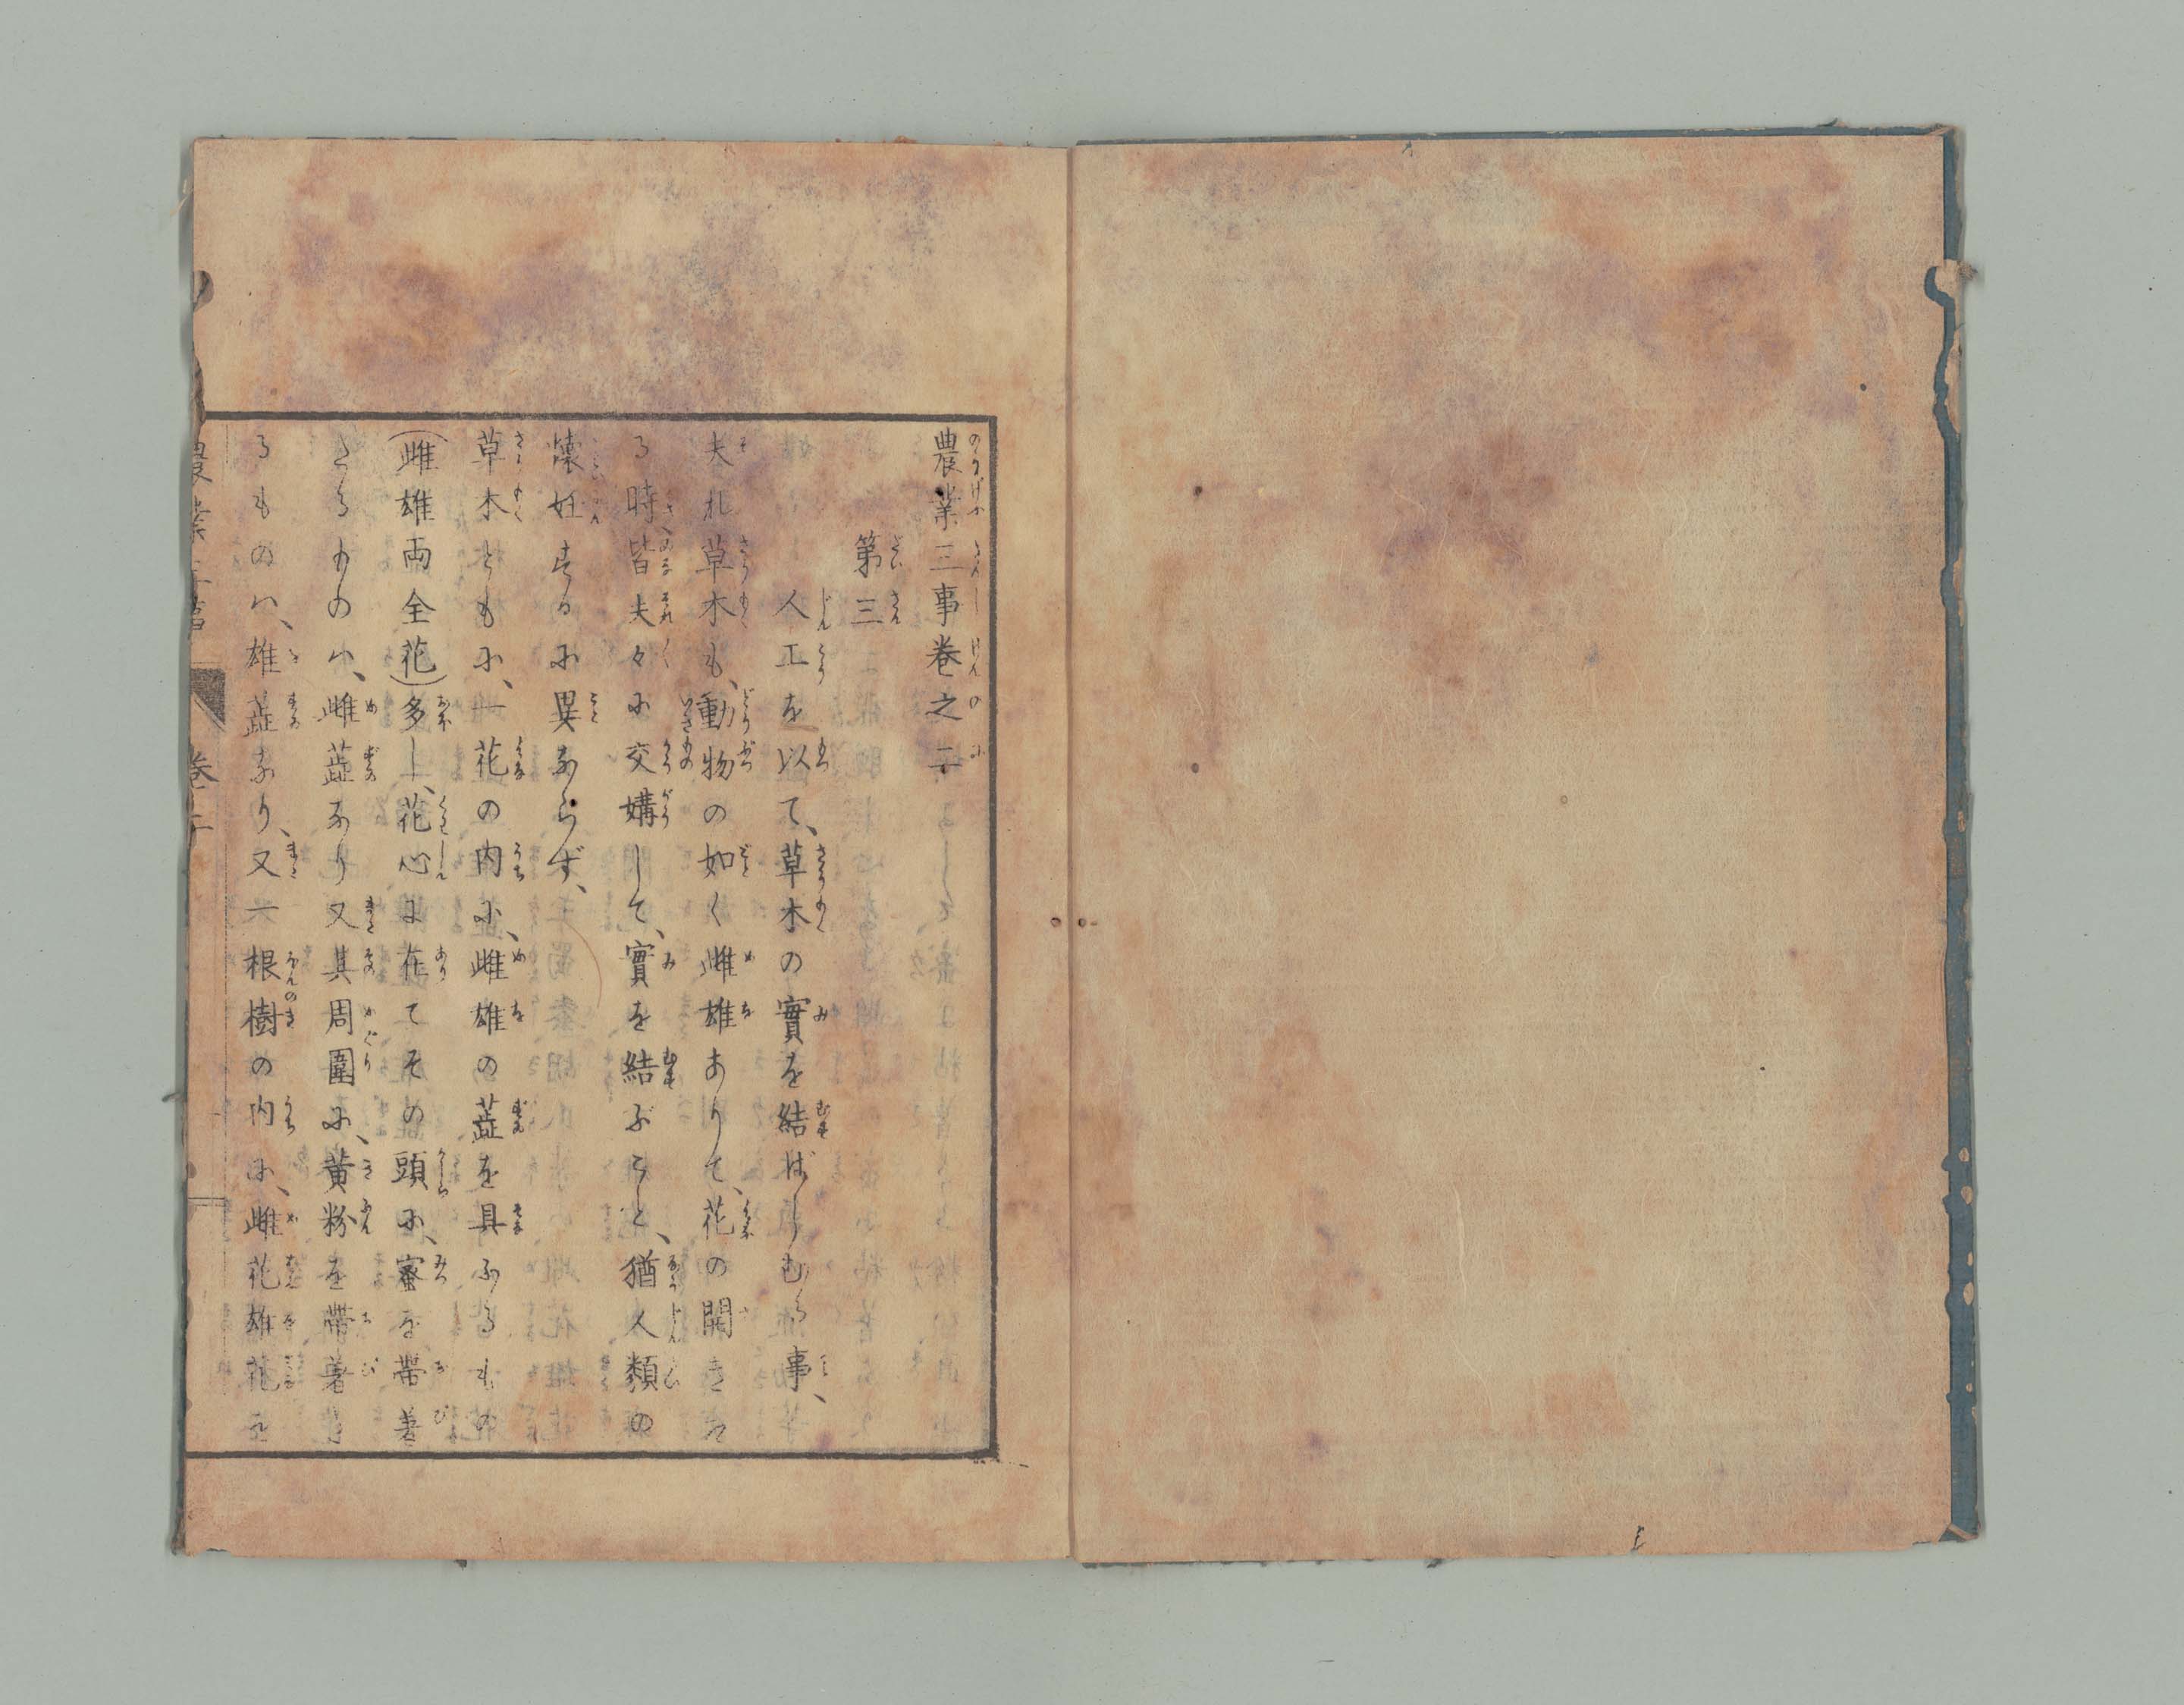 農業三事巻之二
第三
人工を以て、草木の實を結ばしむる事、
夫れ草木も、動物の如く雌雄ありて、花の開きた
る時、皆夫々に交媾して、實を結ぶこと、猶人類の
懐妊するに異ならず、
草木ともに、一花の内に、雌雄の蕋を具ふるもの
(雌雄両全花)多し、花心に在てその頭に、蜜を帯著
さるものハ、雌蕋なり又其周圍に、黄粉を帯著す
るものハ、雄蕋なり、又一根樹の内に、雌花雄花を